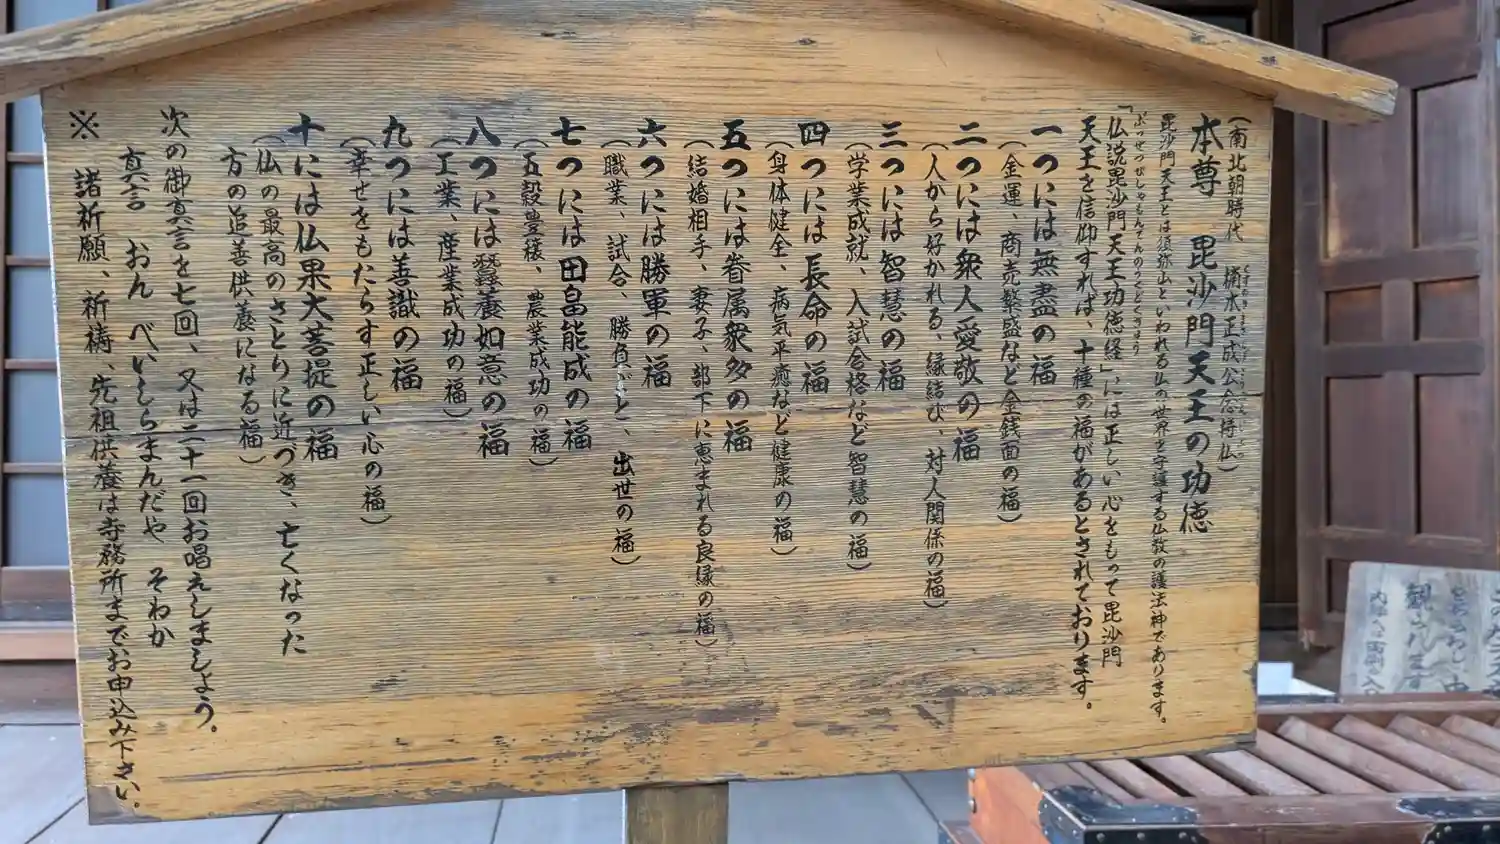 （南北朝時代　楠木正成公念持仏）
本尊　毘沙門天王の功徳
毘沙門天王とは須弥山といわれる仏の世界を守護する仏教の護法神であります。
ぶっせつびしゃもんてんのうくどくきょう
『仏説毘沙門天王功徳経』には正しい心をもって毘沙門
天王を信仰すれば、十種の福があるとされております。
一つには無盡の福
（金運、商売繁盛など金銭面の福）
二つには衆人愛敬の福
（人から好かれる、縁結び、対人関係の福）
三つには智慧の福
（学業成就、入試合格など智慧の福）
四つには長命の福
（身体健全、病気平癒など健康の福）
五つには眷属衆多の福
（結婚相手、妻子、部下に恵まれる良縁の福）
六つには勝軍の福
（職業、試合、勝負ごと、出世の福）
七つには田畠能成の福
（五穀豊穣、農業成功の福）
八つには蠶養如意の福
（工業、産業成功の福）
九つには善識の福
（幸せをもたらす正しい心の福）
十には仏果大菩提の福
（仏の最高のさとりに近づき、亡くなった
方の追善供養になる福）
次の御真言を七回、又は二十一回お唱えしましょう。
真言　おん　べいしらまんだや　そわか
※　諸祈願、祈祷、先祖供養は寺務所までお申込み下さい。